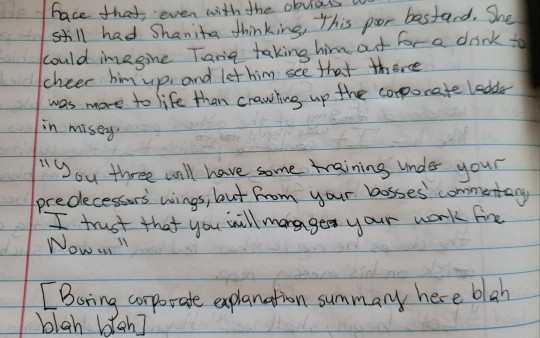 face that, even with the obvious
still had Shanita thinking, This poor bastard. She
could imagine Tariq taking him out for a drink to
cheer him up, and let him see that there
was more to life than crawling up the corporate ladder
in misey.
"You three will have some training under your
predecessors' wings, but from your bosses' commentary
I trust that you will manage your work fine
Now..."
[Boring corporate explanation summary here blah
blah blah]